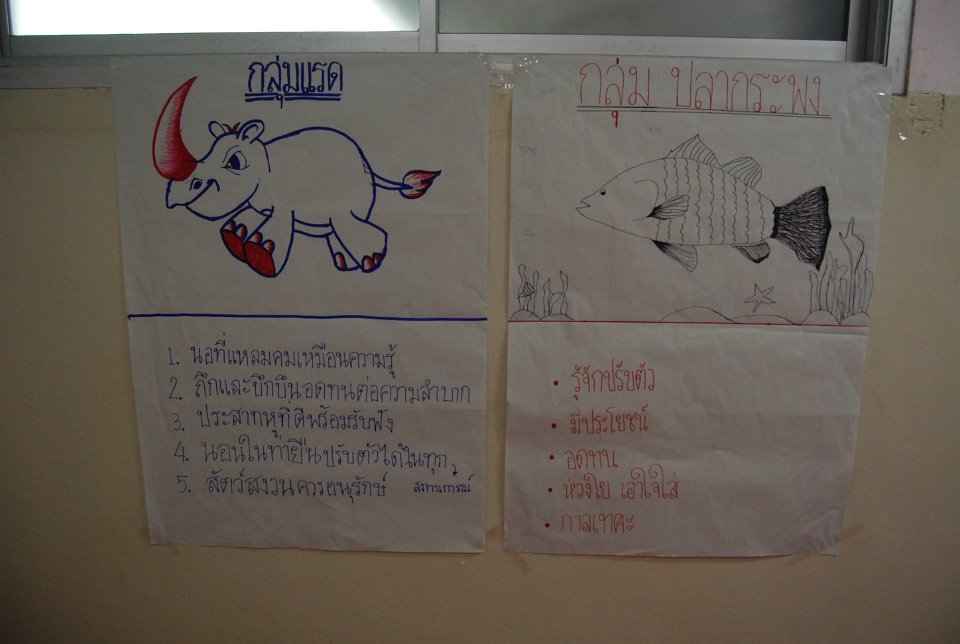 กลุ่มแรด
1. นอที่แหลมคมเหมือนความรู้
2. ถึกและบึกบึนอดทนต่อความลำบาก
3. ประสาทหูที่ดีพร้อมรับฟัง
4. นอนในท่ายืนปรับตัวได้ในทุก
สถานการณ์
5. สัตว์สงวนควรอนุรักษ์
กลุ่ม ปลากระพง
• รู้จักปรับตัว
• มีประโยชน์
• อดทน
• ห่วงใย เอาใจใส่
• กาลเทศะ